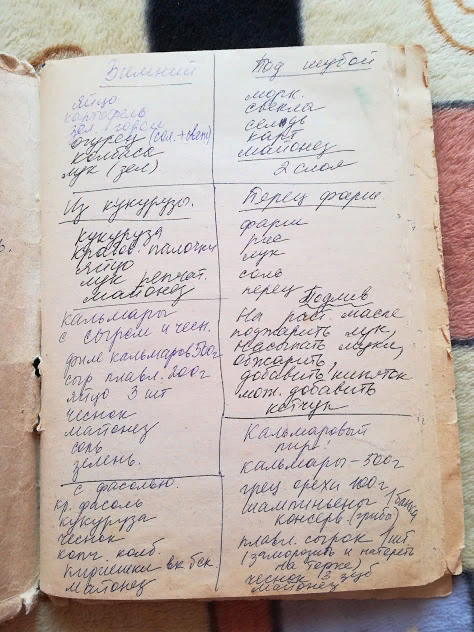 Зимний
яйцо
картофель
зел. горош
огурец (сол. + свеж)
колбаса
лук (зел)
Из кукурузы.
кукуруза
крабов. палочки
яйцо
лук репчат.
майонез
Кальмары
с сыром и чесн.
филе кальмаров 500г
сыр плавл. 200г
яйцо 3 шт
чеснок
майонез
соль
зелень.
с фасолью.
кр. фасоль
кукуруза
чеснок
копч. колб.
кириешки вк бек
майонез
Под шубой
морк.
свекла
сельдь
карт
майонез
2 слоя
Перец фарш.
фарш
рис
лук
соль
перец
Подлив
На раст. масле
поджарить лук,
насыпать муки,
обжарить,
добавить кипяток
мож. добавить
кетчуп
Кальмаровый
пир!
кальмары - 500г
грец орехи 100г
шампиньоны 1 банка
консерв. (грибы)
плавл. сырок 1 шт
(заморозить и натереть
на терке)
чеснок 3 зуб
майонез